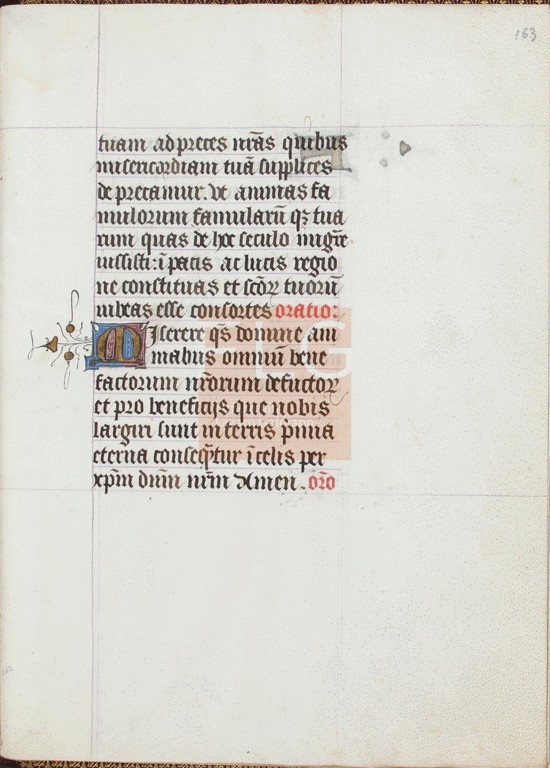 163
tuam ad preces nr̃as quibus
misericordiam tuã supplices
deprecamur. vt animas fa
mulorum famularũ qʒ tua
rum quas de hoc seculo migr̃e
iussisti: ĩ pacis ac lucis regio
ne constituas et sc̃oꝝ tuorũ
iubeas esse consortes oratio:
Miserere qs̃ domine ani
mabus omniũ bene
factorum nr̃orum defunctoꝝ
et pro beneficijs que nobis
largiti sunt in terris p̃mia
eterna conseq̃ntur ĩ celis per
xp̃m dñm nr̃m Amen. or̃o